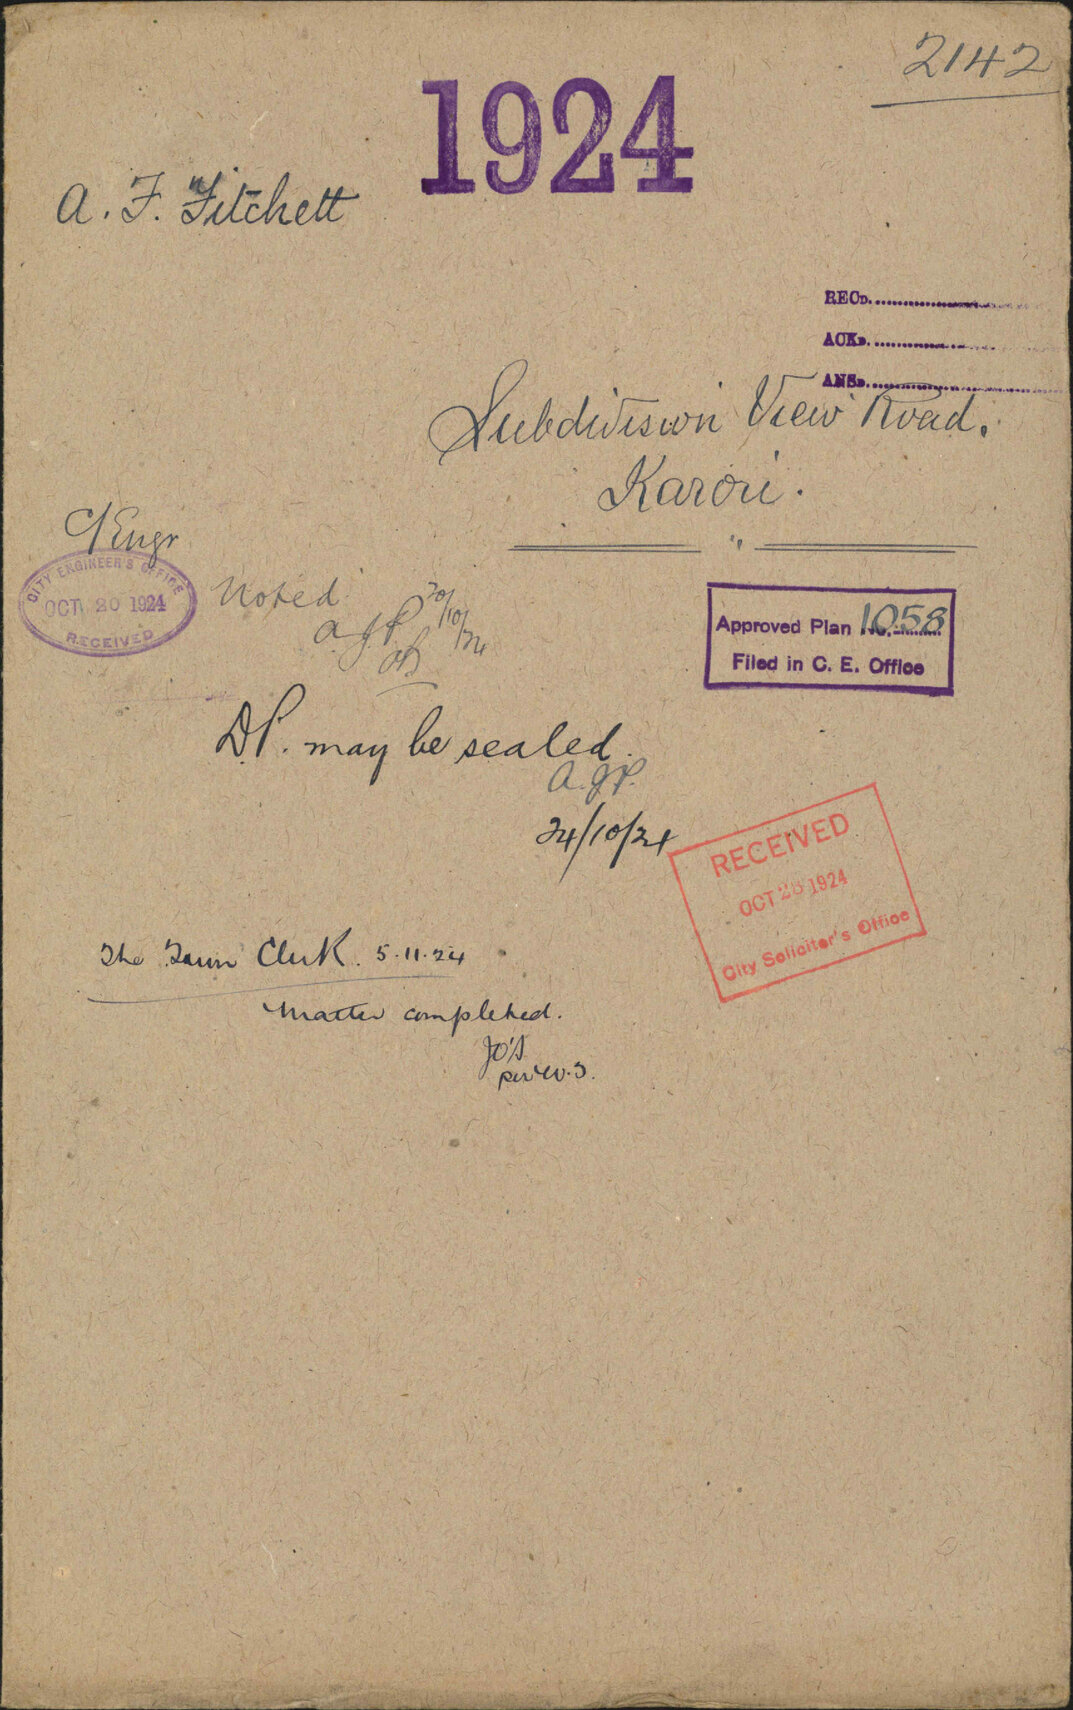 2142
1924
A. F. Fitchett
RECD.
ACKD.
ANSD.
Subdivision View Road.
Karori.
C/Engr
CITY ENGINEER'S OFFICE
OCT 20 1924
RECEIVED
Noted
A.J.P. 20/10/24
Approved Plan No. 1058
Filed in C. E. Office
D.P. may be sealed.
A.J.P.
24/10/24
RECEIVED
OCT 28 1924
City Solicitor's Office
The Town Clerk. 5.11.24
Matter completed.
JO'S
per